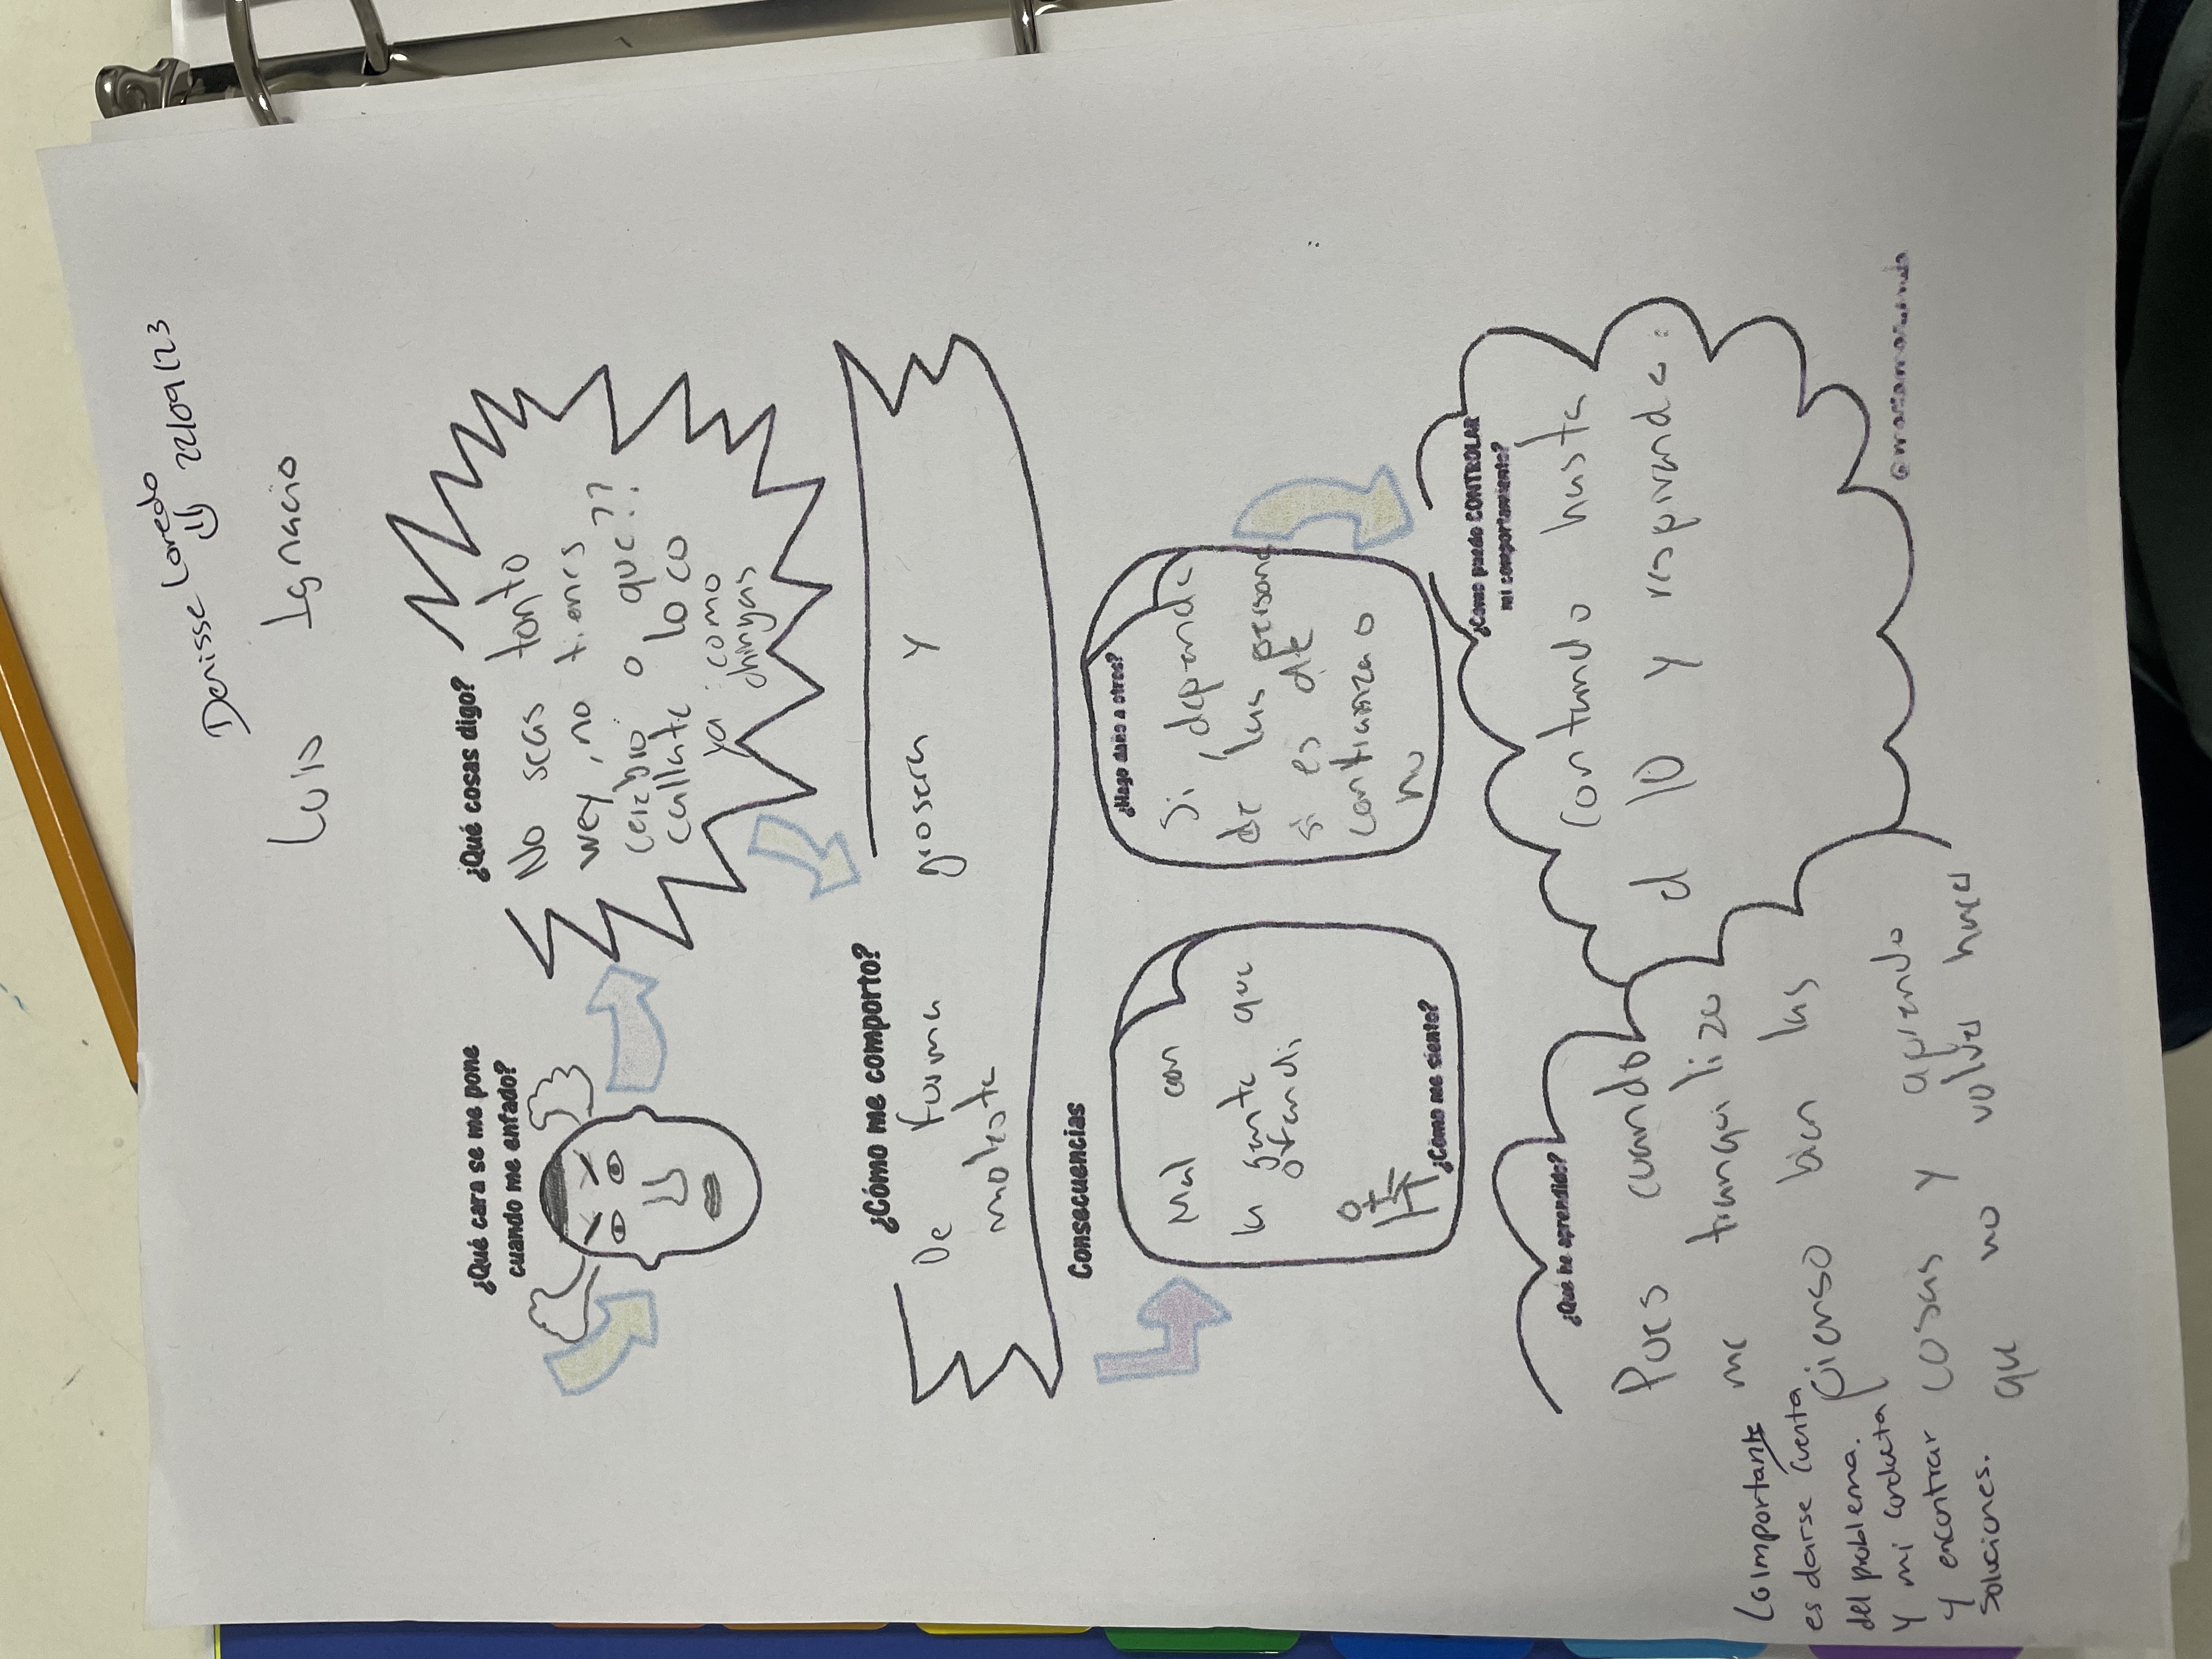 Denisse Loredo
22/09/23
Luis Ignacio
¿Qué cara se me pone
cuando me enfado?
¿Qué cosas digo?
No seas tonto
wey, no tienes
cerebro o que??
callate loco
ya como
chingas
¿Cómo me comporto?
De forma grosera y
molesta
Consecuencias
Mal con
la gente que
ofendi
¿Cómo me siento?
¿Hago daño a otros?
Si depende
de las persona
si es de
confianza o
no
¿Cómo puedo CONTROLAR
mi comportamiento?
Contando hasta
el 10 y respirando.
¿Qué he aprendido?
Pues cuando
me tranquilizo
pienso bien las
cosas y aprendo
que no volver hacer
Lo importante
es darse cuenta
del problema.
Y mi conducta
y encontrar
soluciones.